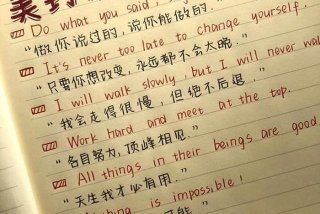 美
Do what you said,
"做你说过的,说你能做的."
It's never too late to change yourself.
"只要你想改变,永远都不会太晚."
I will walk slowly, but I will never
"我会走得很慢,但绝不后退."
Work hard and meet at the top.
"各自努力,顶峰相见."
All things in their beings are good
"天生我才必有用."
is impossible!